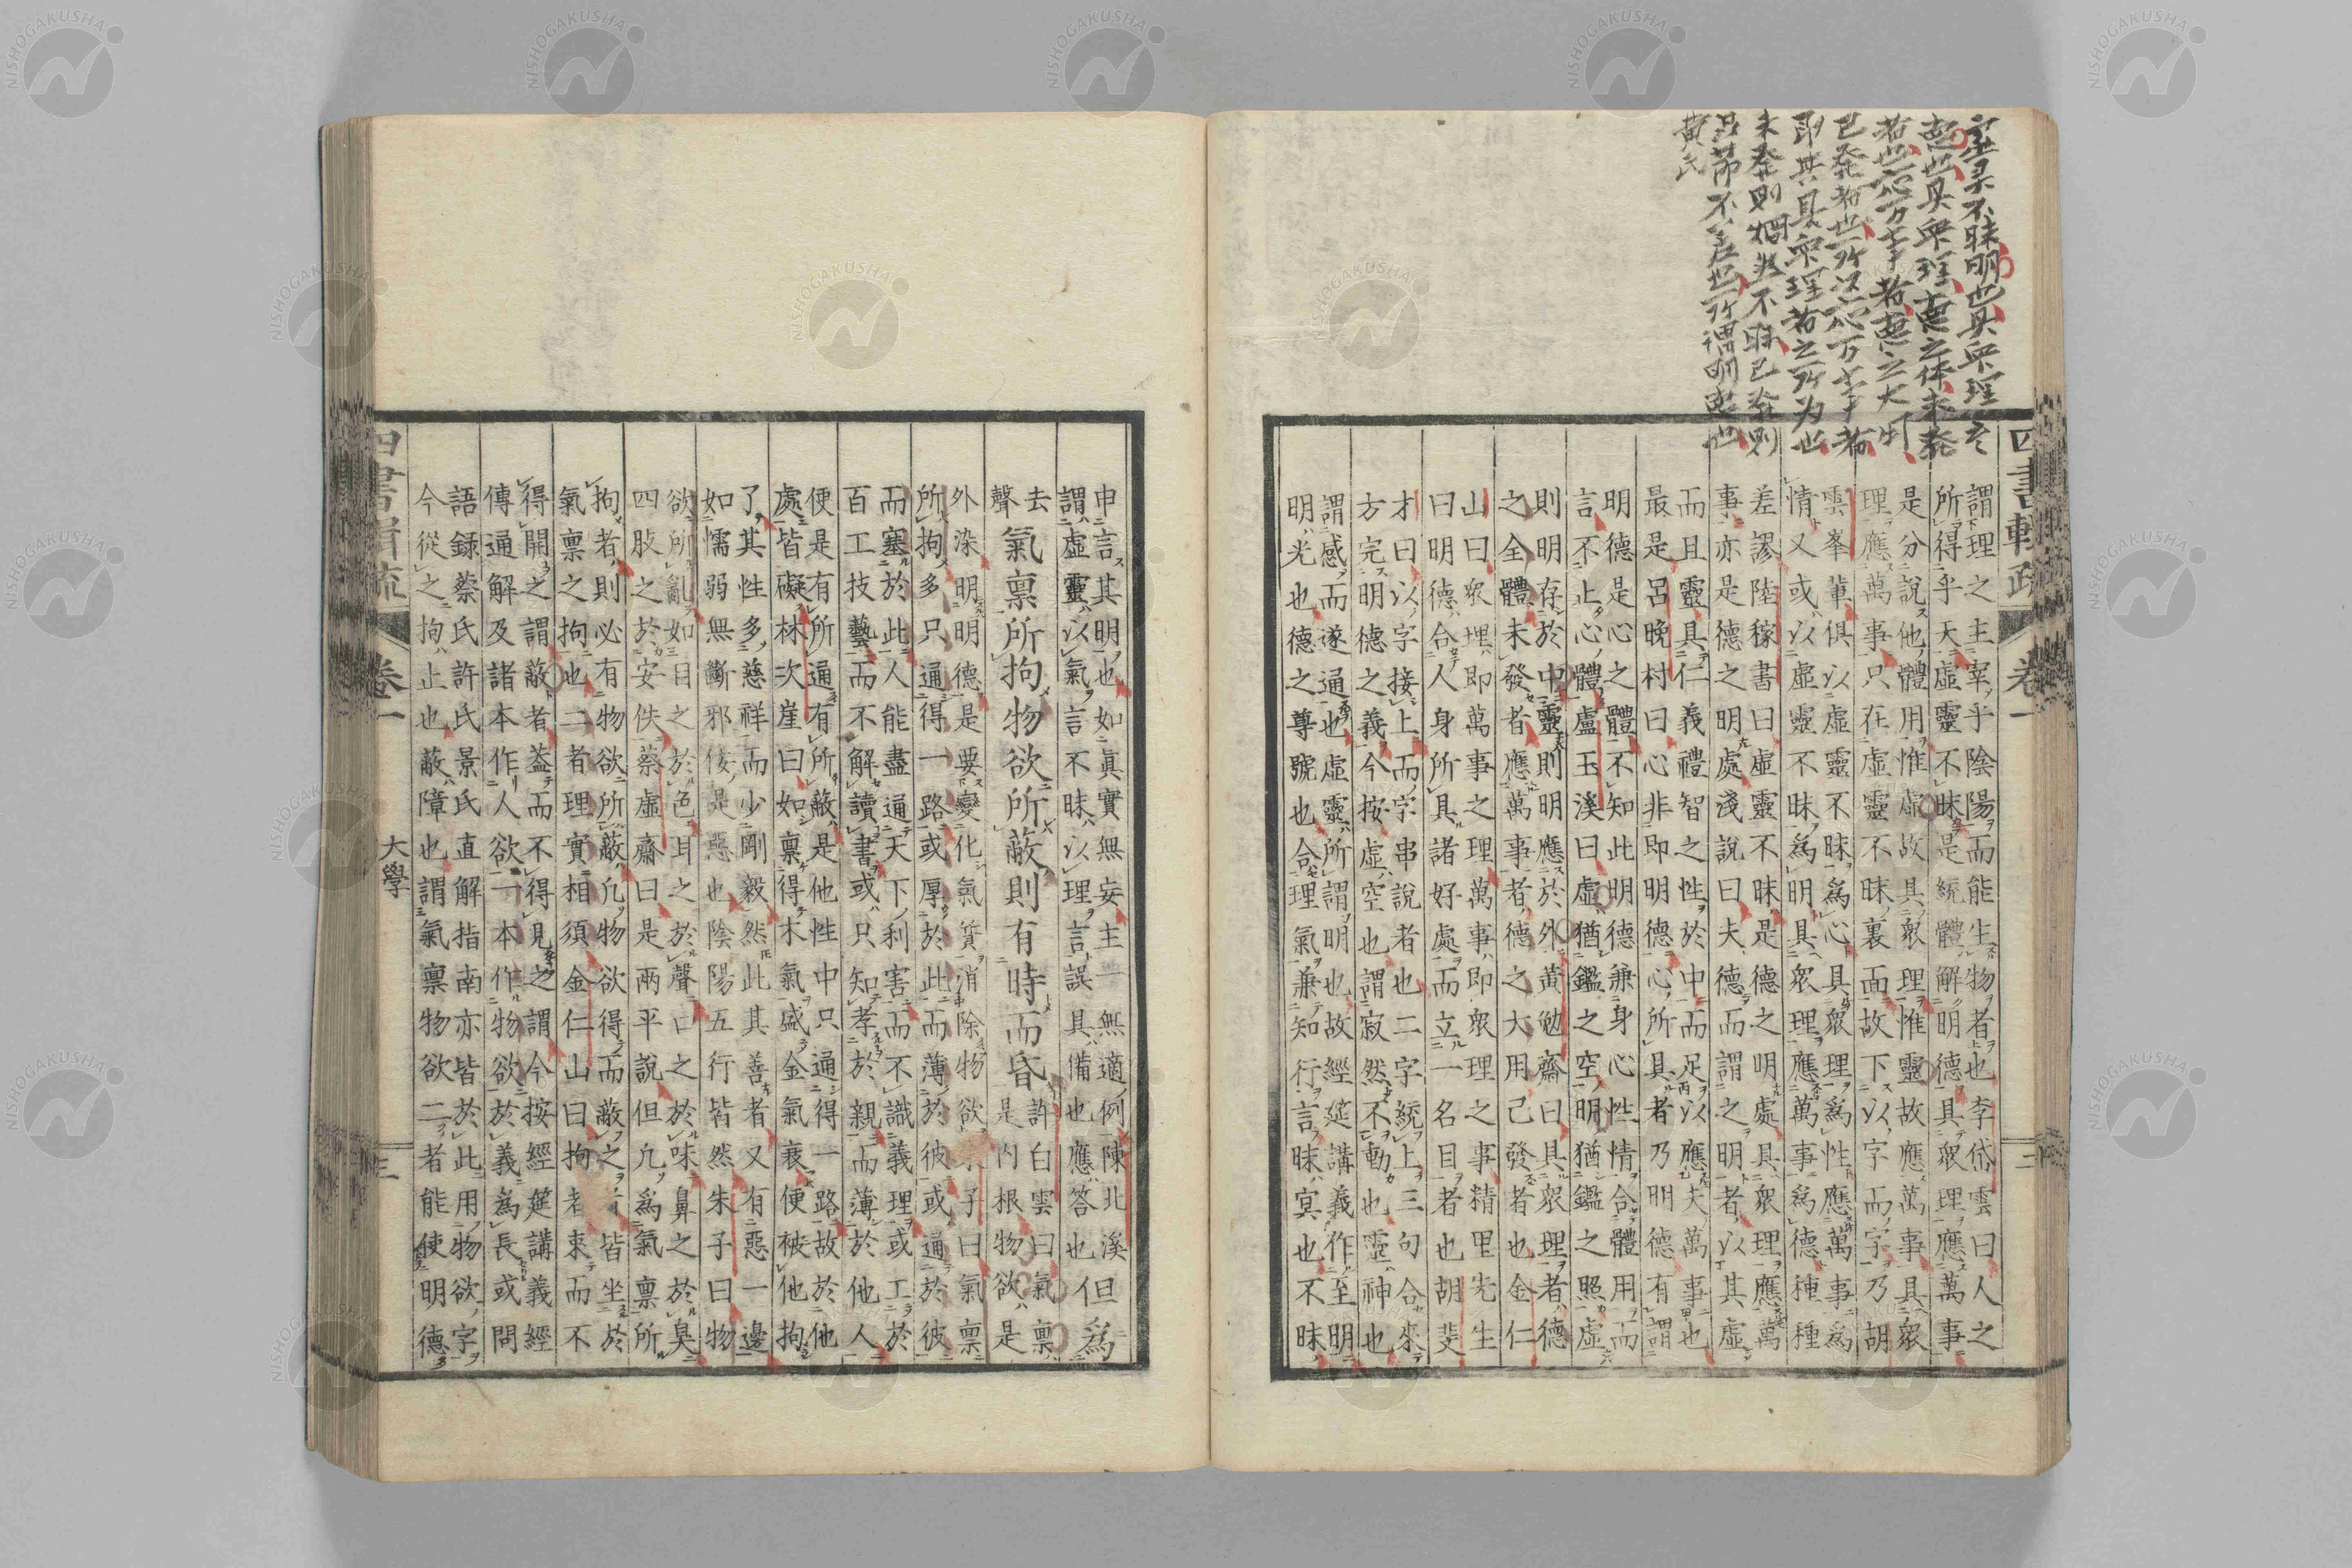 虚灵不昧明也具眾理
德也具眾理德之体未発
者也応万事者德之大用
已発者也所以応万事者
即其具眾理者之所为也
未発則烱然不昧已発則
品節不差也所謂明德也
黄氏
四書輯疏
卷一
謂理之主宰乎陰陽而能生物者也李岱雲曰人之
所得乎天虛靈不昧是統體解明德具眾理應萬事
是分說他體用惟虛故具眾理惟靈故應萬事具眾
理應萬事只在虛靈不昧裏面故下以字而字乃胡
雲峯輩俱以虛靈不昧爲心具眾理爲性應萬事爲
情又或以虛靈不昧爲明具眾理應萬事爲德種種
差謬陸稼書曰虛靈不昧是德之明處具眾理應萬
事亦是德之明處淺說曰夫德而謂之明者以其虛
而且靈具仁義禮智之性於中而足以應夫萬事也
最是呂晚村曰心非即明德心所具者乃明德有謂
明德是心之體不知此明德兼身心性情合體用而
言不止心體盧玉溪曰虛猶鑑之空明猶鑑之照虛
則明存於中靈則明應於外黃勉齋曰具眾理者德
之全體未發者應萬事者德之大用已發者也金仁
山曰眾理即萬事之理萬事即眾理之事精里先生
曰明德合人身所具諸好處而立一名目者也胡斐
才曰以字接上而字串說者也二字統上三句合來
方完明德之義今按虛空也謂寂然不動也靈神也
謂感而遂通也虛靈所謂明也故經筵講義作至明
明光也德之尊號也合理氣兼知行言昧冥也不昧
申言其明也如眞實無妄主一無適例陳北溪但爲
謂虛靈以氣言不昧以理言誤具備也應答也
去聲氣禀所拘物欲所蔽則有時而昏許白雲曰氣禀
是內根物欲是
外染明明德是要變化氣質消除物欲
子曰氣禀
所拘多只通得一路或厚於此而薄於彼或通於彼
而塞於此人能盡通天下利害而不識義理或工於
百工技藝而不解讀書或只知孝於親而薄於他人
便是有所通有所蔽是他性中只通得一路故於他
處皆礙林次崖曰如禀得木氣盛金氣衰便被他拘
了其性多慈祥而少剛毅然此其善者又有惡一邊
如懦弱無斷邪佞是惡也陰陽五行皆然朱子曰物
欲所亂如目之於色耳之於聲口之於味鼻之於臭
四肢之於安佚蔡虛齋曰是兩平說但凢爲氣禀所
拘者則必有物欲所蔽凢物欲得而蔽之
皆坐於
氣禀之拘也二者理實相須金仁山曰拘者束而不
得開之謂蔽者葢而不得見之謂今按經筵講義經
傳通解及諸本作人欲一本作物欲於義爲長或問
語録蔡氏許氏景氏直解指南亦皆於此用物欲字
今從之拘止也蔽障也謂氣禀物欲二者能使明德
四書輯疏
卷一
大學
三